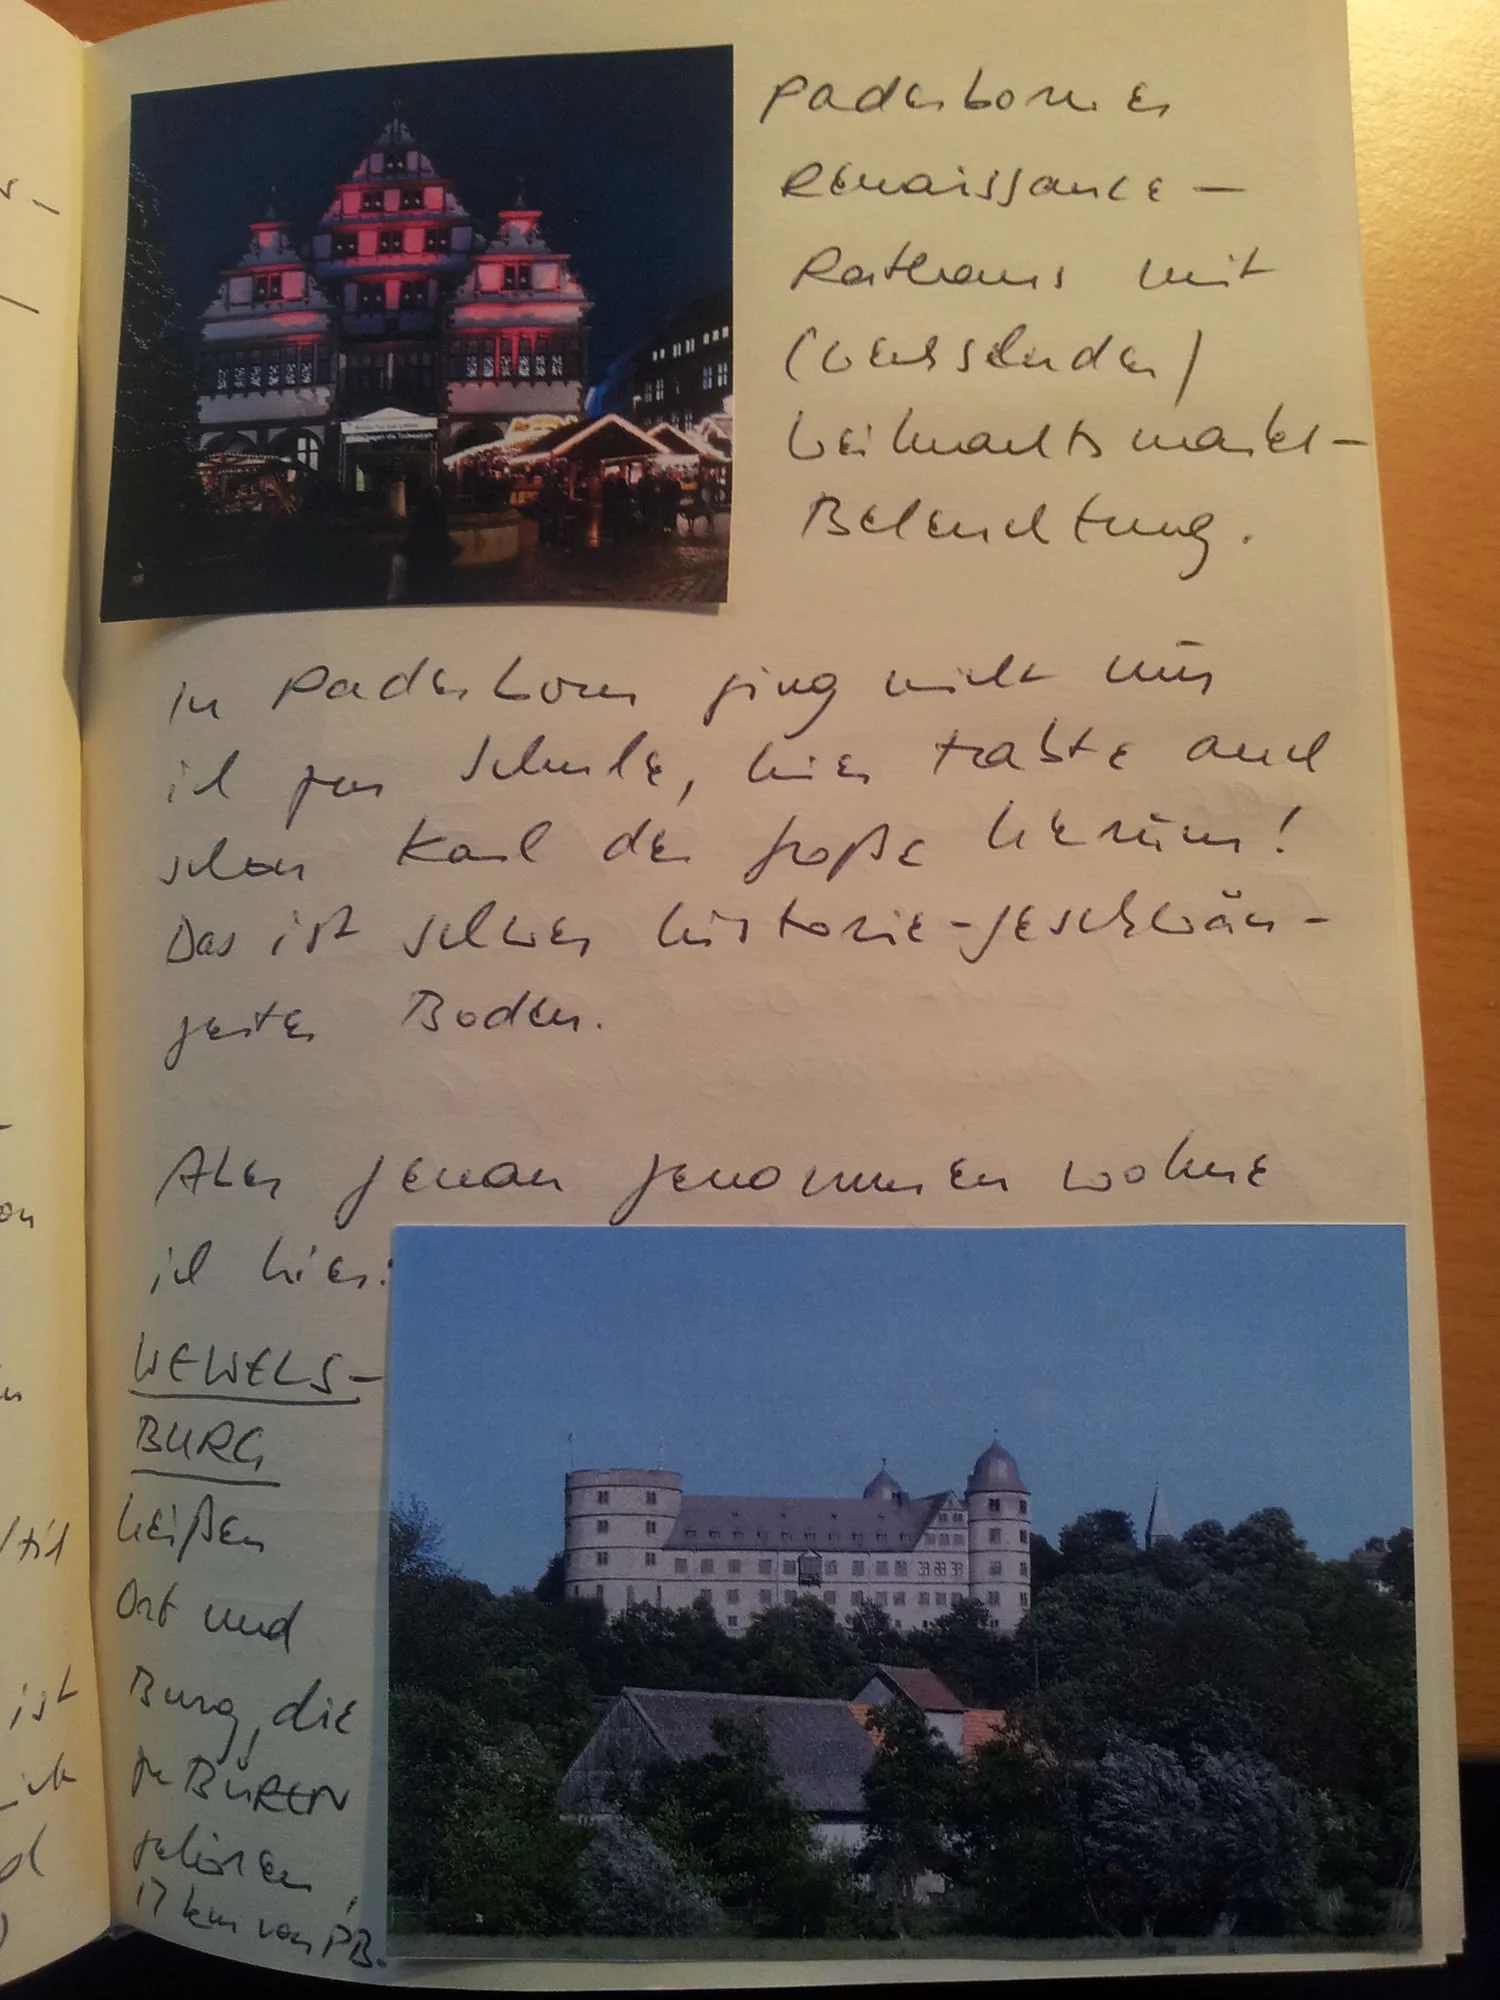 Paderborner
Renaissance-
Rathaus mit
(wechselnder)
Weihnachtsmarkt-
Beleuchtung.
In Paderborn ging nicht nur
ich zur Schule, hier trabte auch
schon Karl der Große herum!
Das ist schwer historie-geschwän-
gerter Boden.
Aber genau genommen wohne
ich hier:
WEWELS-
BURG
heißen
Ort und
Burg, die
zu BÜREN
gehören,
17 km von PB.